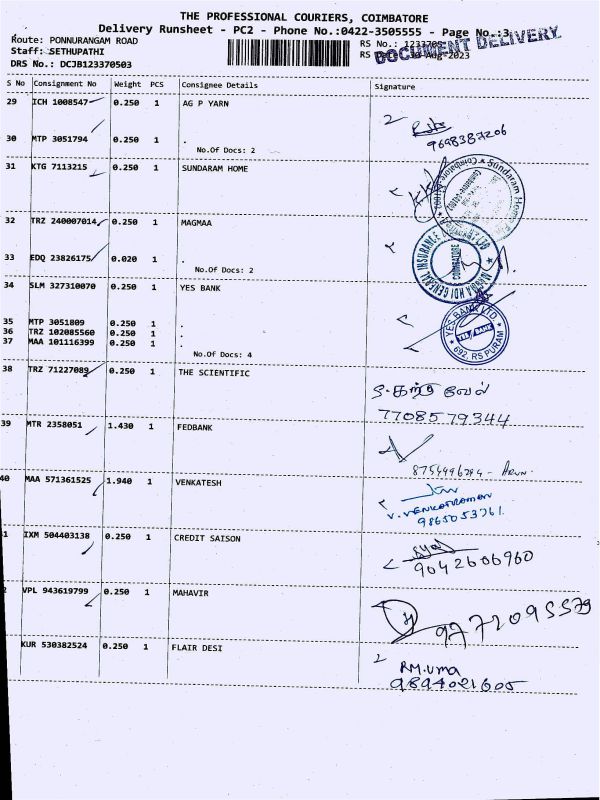 THE PROFESSIONAL COURIERS, COIMBATORE
Delivery Runsheet - PC2 - Phone No.:0422-3505555 - Page No.:3
Route: PONNURANGAM ROAD
RS No.:
Staff: SETHUPATHI
RS
DOCUMENT DELIVERY
DRS No.: DCJB123370503
S No Consignment No Weight PCS Consignee Details Signature
29 ICH 1008547 0.250 1 AG P YARN
2
9698387206
30 MTP 3051794 0.250 1 .
No.Of Docs: 2
31 KTG 7113215 0.250 1 SUNDARAM HOME
Sundaram Home
Coimbatore
32 TRZ 240007014 0.250 1 MAGMAA
MAGMA HDI GENERAL INSURANCE
COIMBATORE
33 EDQ 23826175 0.020 1 .
No.Of Docs: 2
34 SLM 327310070 0.250 1 YES BANK
YES BANK LTD.
YES BANK
692, RS PURAM
35 MTP 3051809 0.250 1 .
36 TRZ 102085560 0.250 1 .
37 MAA 101116399 0.250 1 .
No.Of Docs: 4
38 TRZ 71227089 0.250 1 THE SCIENTIFIC
7708579344
39 MTR 2358051 1.430 1 FEDBANK
8754496294 - Arun.
40 MAA 571361525 1.940 1 VENKATESH
V. VENKATRAMAN
9865053761
1 IXM 504403138 0.250 1 CREDIT SAISON
9042606960
2 VPL 943619799 0.250 1 MAHAVIR
9777095579
KUR 530382524 0.250 1 FLAIR DESI
2
RM.uma
9894021605